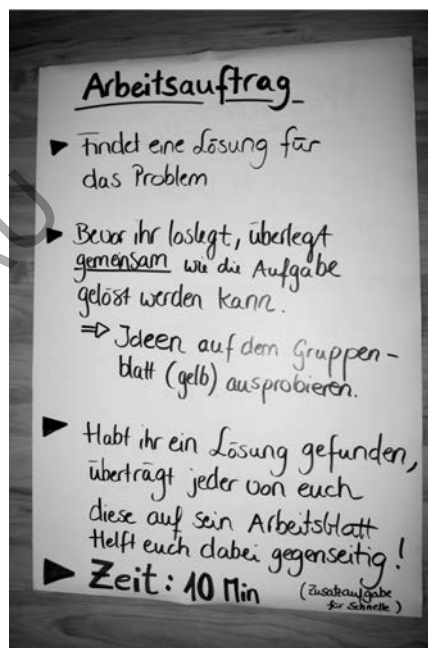 Arbeitsauftrag
▶ Findet eine Lösung für
das Problem
▶ Bevor ihr loslegt, überlegt
gemeinsam wie die Aufgabe
gelöst werden kann.
⇒ Ideen auf dem Gruppen-
blatt (gelb) ausprobieren.
▶ Habt ihr ein Lösung gefunden,
überträgt jeder von euch
diese auf sein Arbeitsblatt
Helft euch dabei gegenseitig!
▶ Zeit: 10 Min
(Zusatzaufgabe
für Schnelle)